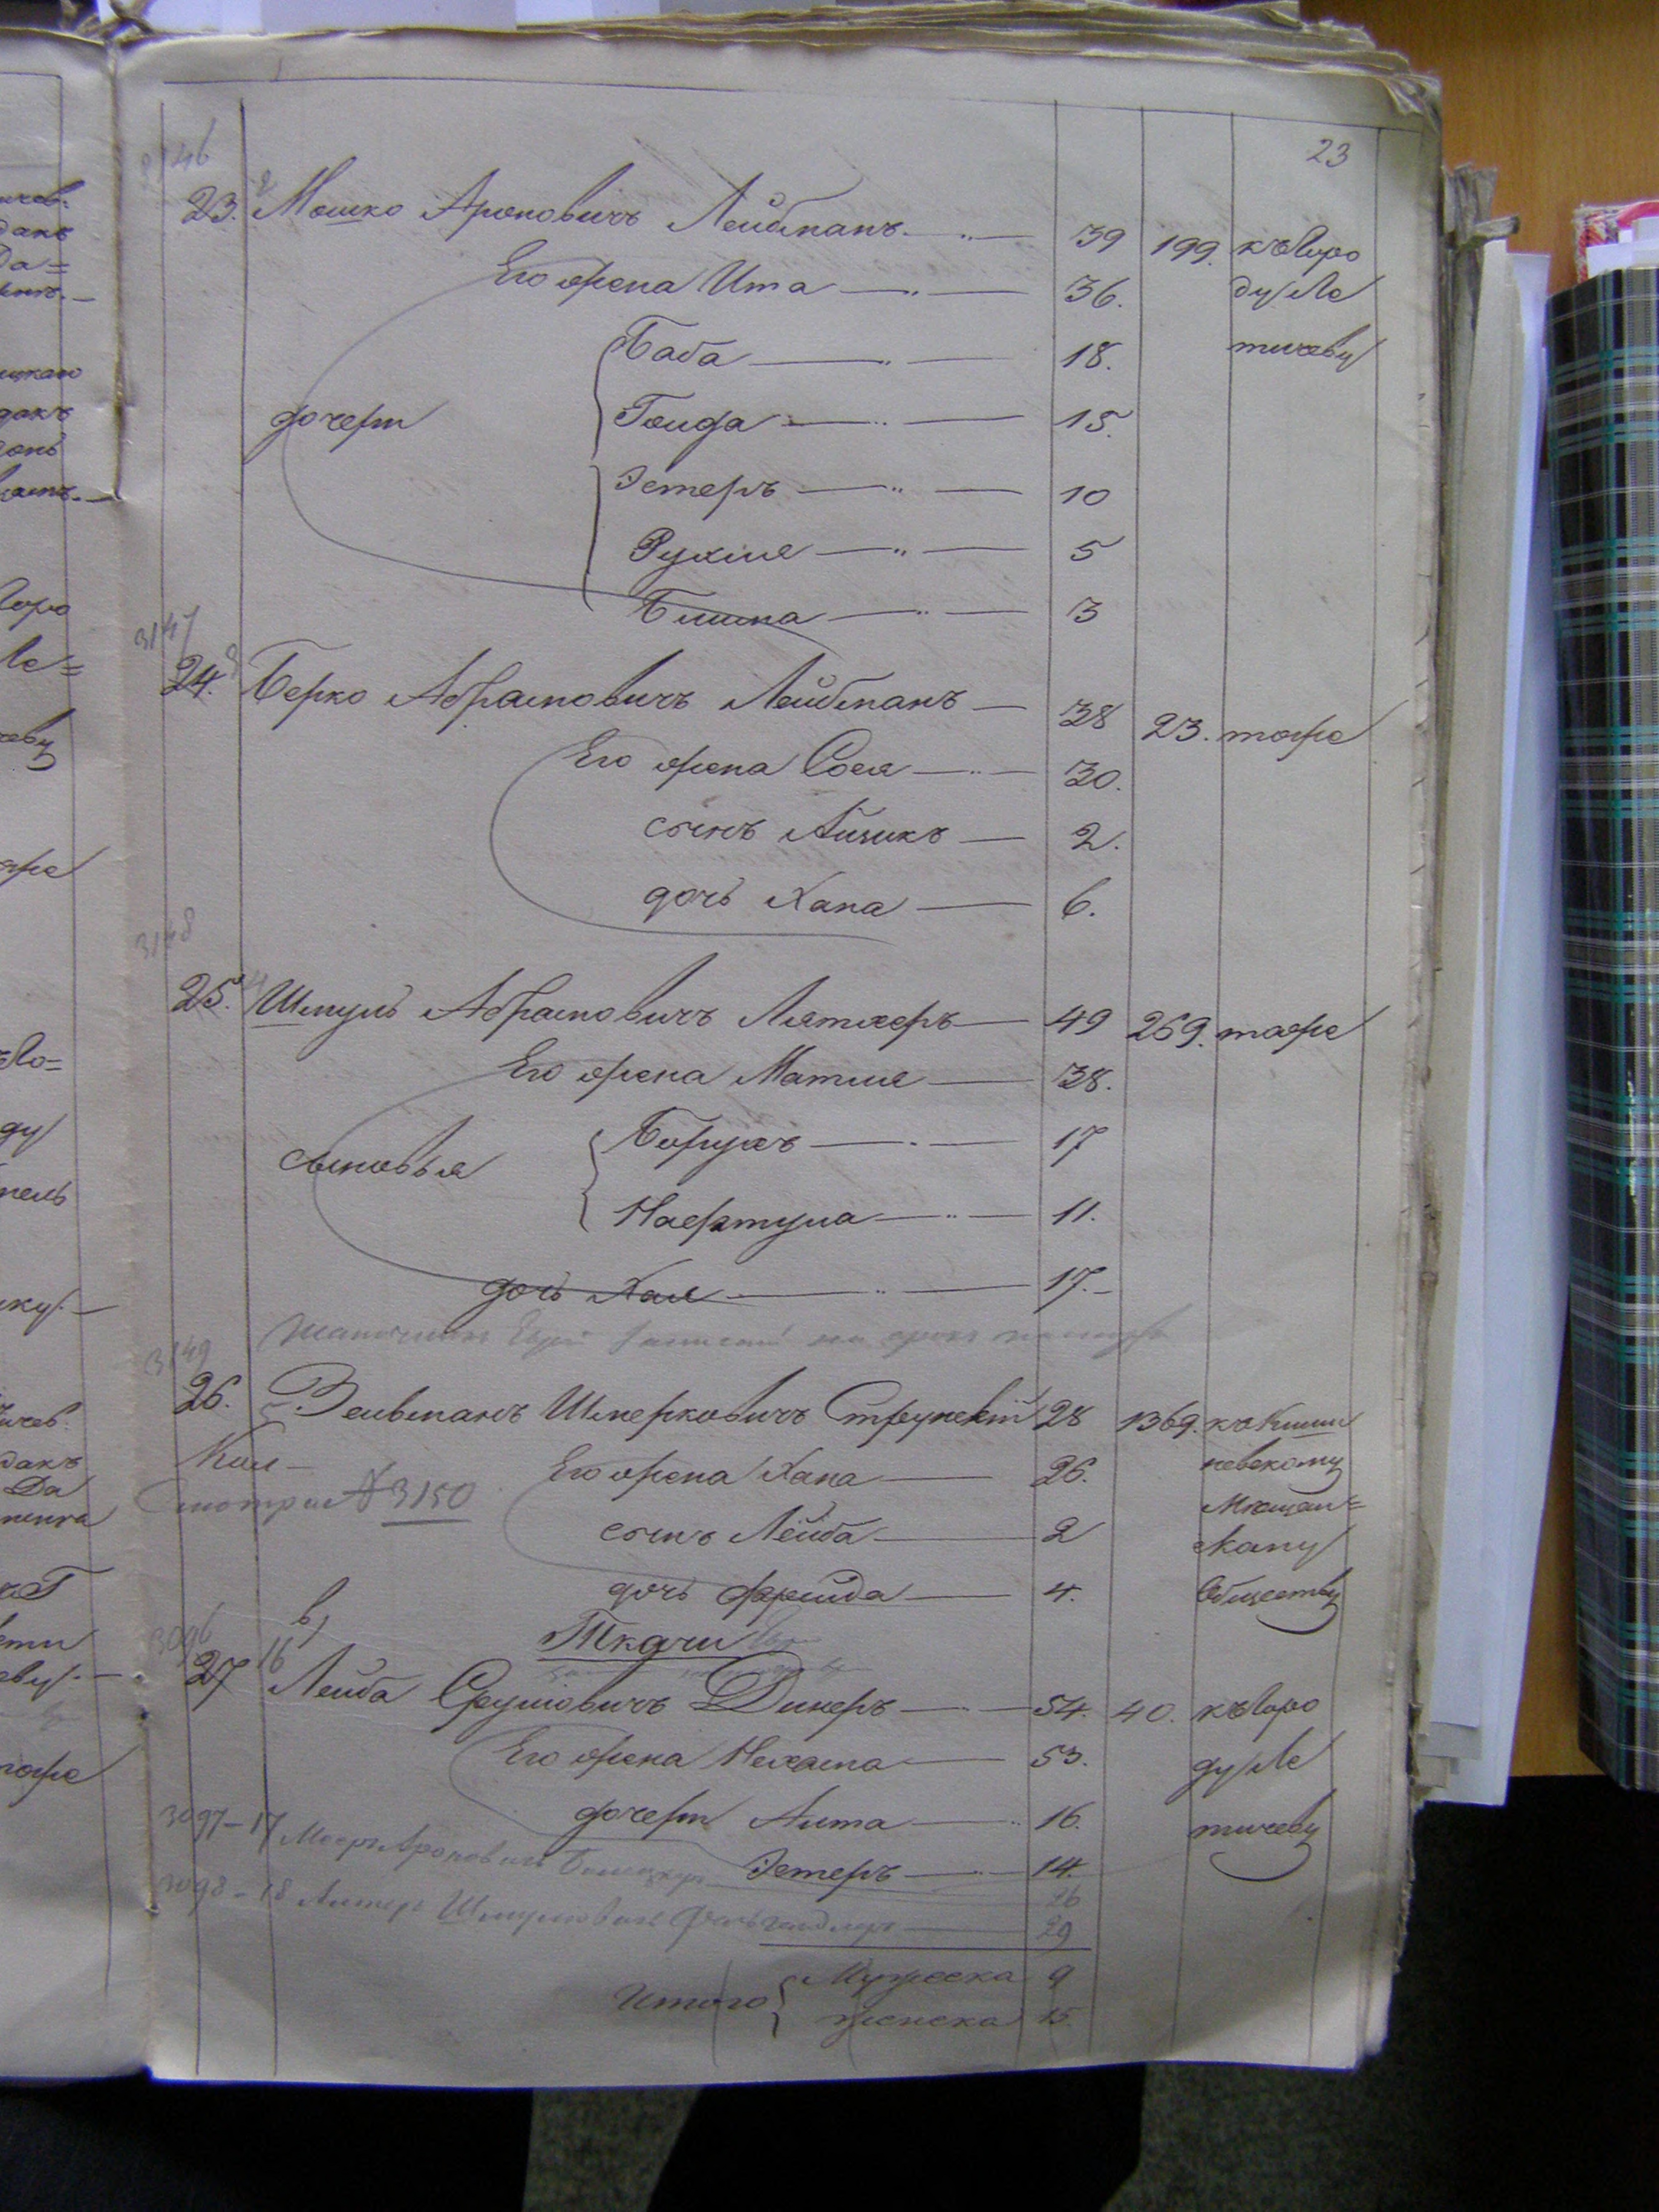 23
3146
23. 2 Мошко Ароновичъ Лейбманъ 39 199. къ Горо
Его жена Ита 36. ду Ле
Баба 18. тичеву
дочери Гоида 15.
Эстеръ 10
Рухля 5
Блима 3
3147
24. 3 Берко Абрамовичъ Лейбманъ 38 23. тоже
Его жена Сося 30.
сынъ Айзикъ 2.
дочь Хана 6.
3148
25. 4 Шмуль Абрамовичъ Лятхеръ 49 269. тоже
Его жена Матля 38.
Борухъ 17
сыновья
Нафтула 11.
дочь Хая 17.
3149
26. 5 Зельманъ Шмерковичъ Струнскій 28 1369. къ Киши
Его жена Хана 26. невскому
Смотри № 3150 Мѣщан=
сынъ Лейба 2 скому
дочь Фрейда 4. Обществу
в)
Ткачи
3096
27 16 Лейба Сруловичъ Динеръ 54. 40. къ Горо
Его жена Нехама 53. ду Ле
дочери Анта 16. тичеву
3097-17 Мееръ Ароновичъ 26
Эстеръ 14.
3098-18 Литеръ Шмулевичъ 29
Итого Мужеска 9
женска 15.